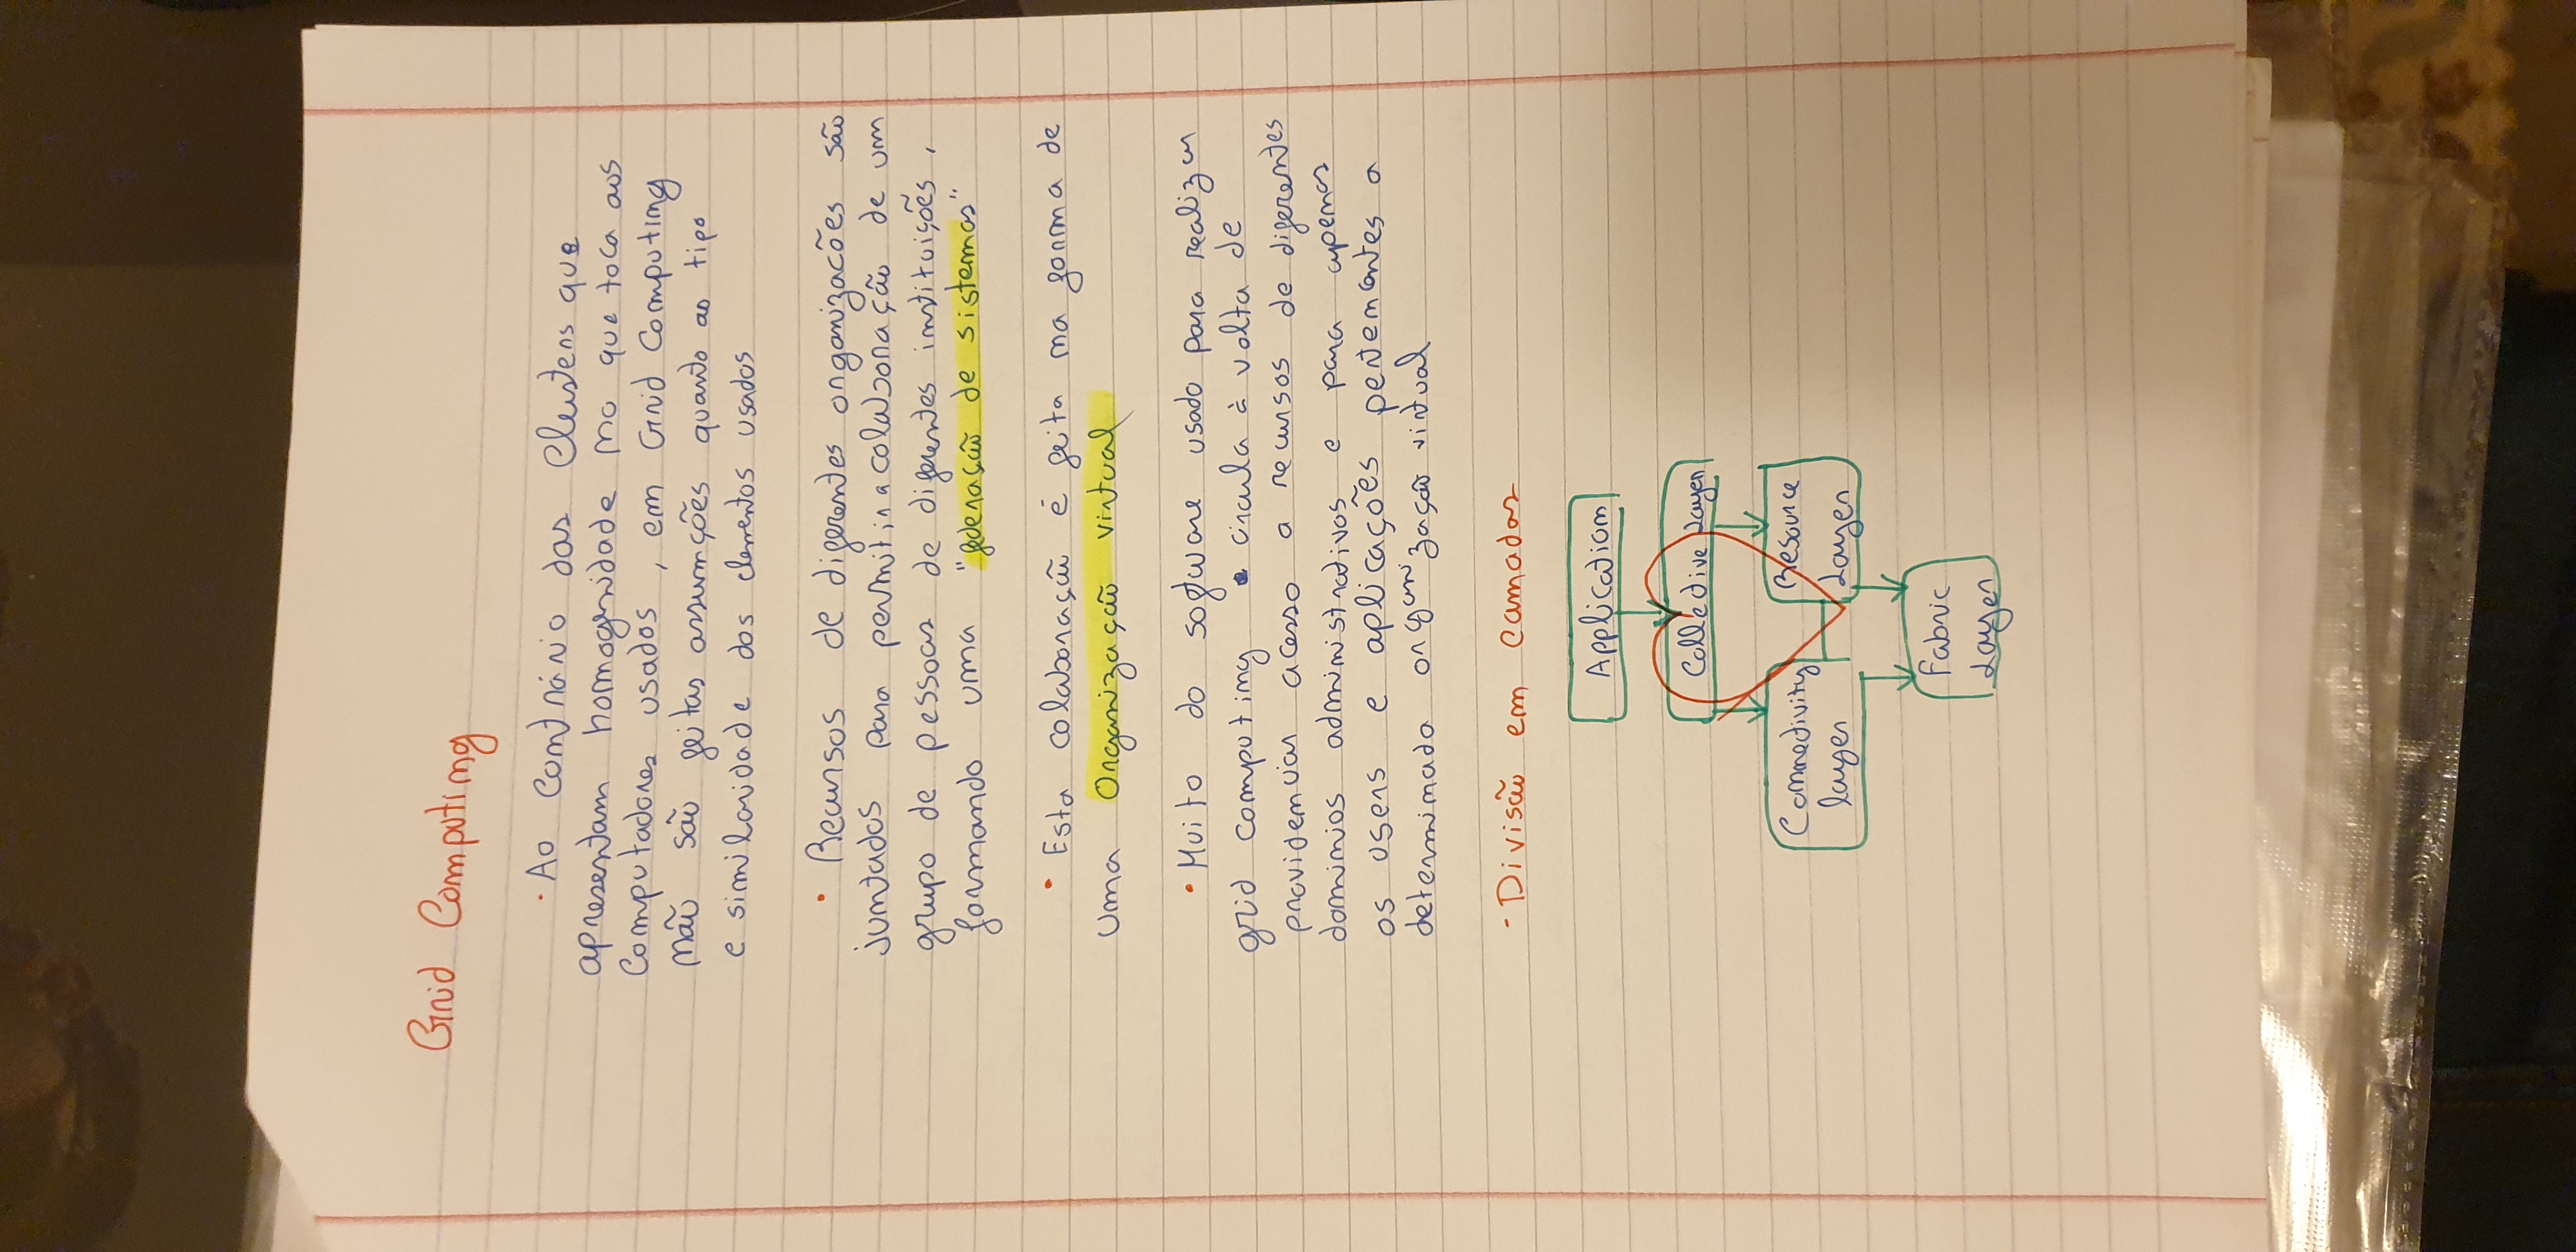 Grid Computing
· Ao contrário das Clusters que
apresentam homogenidade no que toca aos
Computadores usados, em Grid Computing
não são feitas assumções quanto ao tipo
e similaridade dos elementos usados
· Recursos de diferentes organizacões são
juntados para permitir a colaboração de um
grupo de pessoas de diferentes instituições,
formando uma "federação de sistemas"
· Esta colaboração é feita na forma de
uma Organização virtual
· Muito do software usado para realizar
grid computing circula à volta de
providenciar acesso a recursos de diferentes
dominios administrativos e para apenas
os users e aplicações pertencentes a
determinada organização virtual
- Divisão em Camadas
Application
Collective Layer
Connectivity Resource
layer Layer
Fabric
Layer